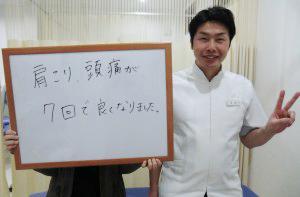 肩こり、頭痛が
7回で良くなりました。